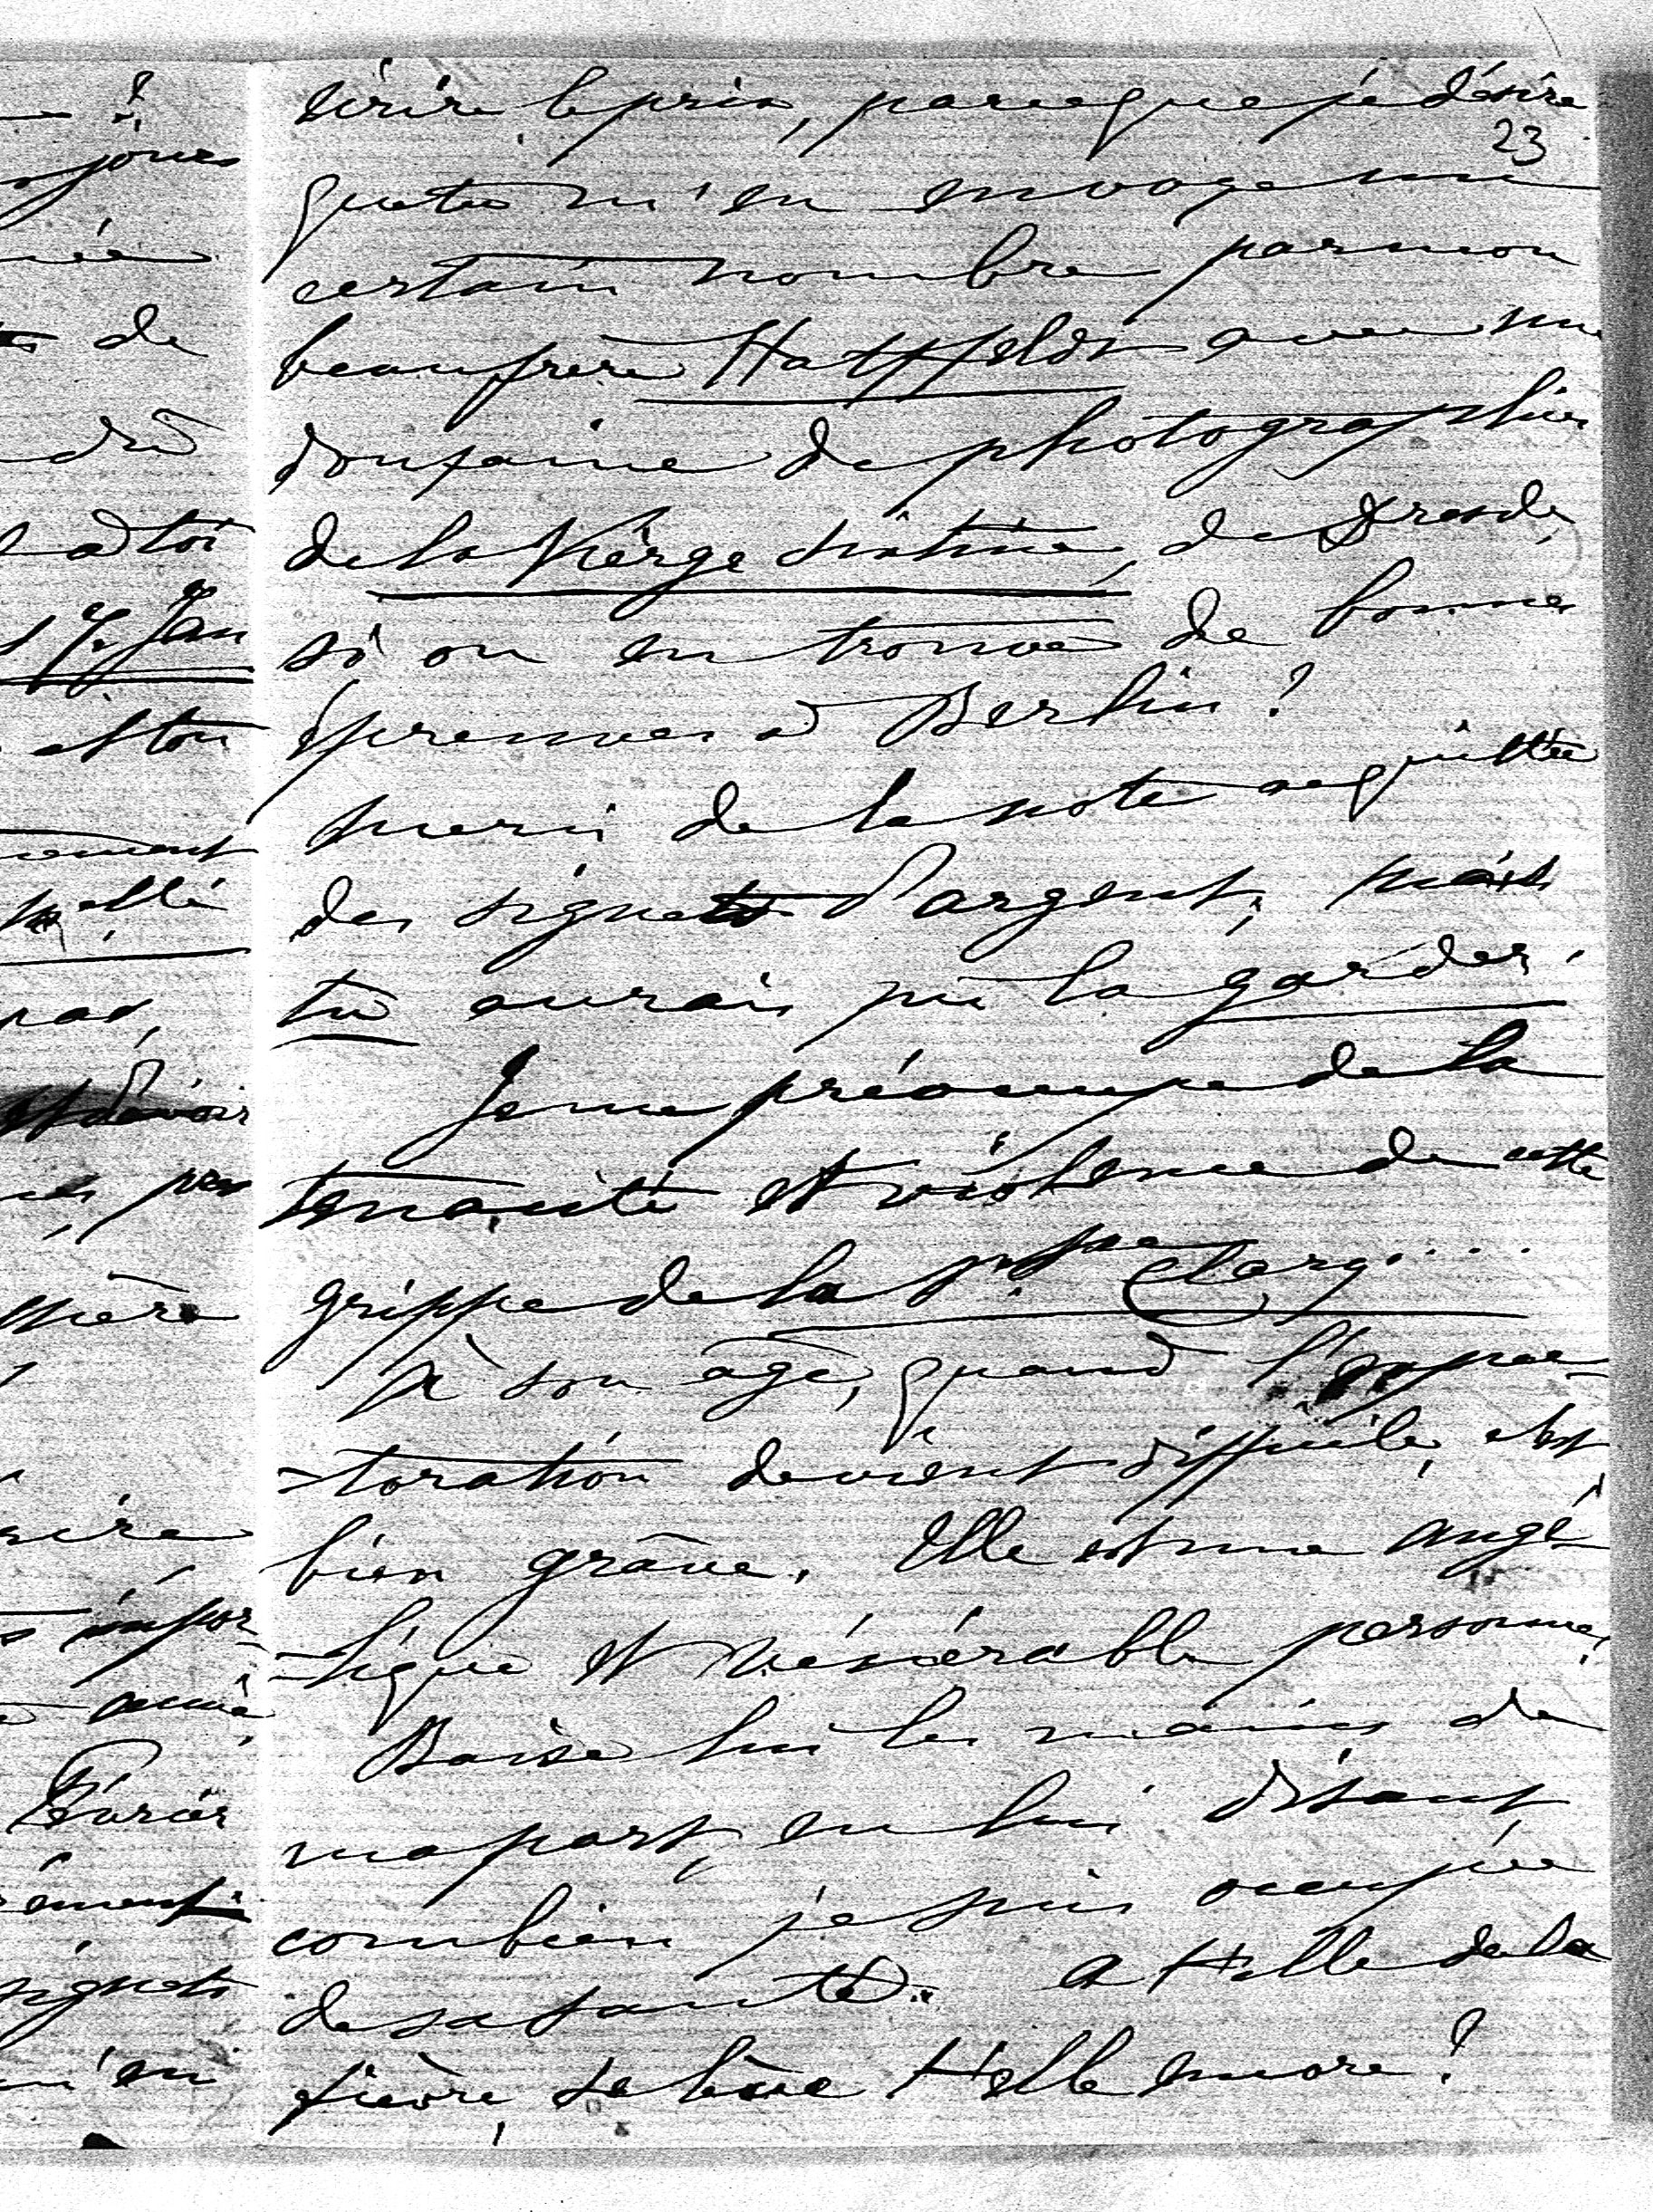 écrire le prix, parceque je désire
23
que tu m'en envoye un
certain nombre par mon
beaufrère Hatzfeldt avec une
douzaine de photographies
de la Vierge Sixtine, de Dresde,
si on en trouve de bonnes
épreuves à Berlin?
Merci de la note acquittée
des signets d'argent, mais
tu aurais pu la garder.
Je me préoccupe de la
tenacité et violence de cette
grippe de la Psse Clary....
A son âge, quand l'expec-
=toration devient difficile, c'est
bien grâve. Elle est une angé-
=lique et vénérable personne,
Baise lui les mains de
ma part, en lui disant
combien je suis occupée
de sa santé.. a t-elle de la
fièvre, se lève t-elle encore?
jours
de
à toi
Jan
et ton
pas,
devoir
mère
impor-
amie,
Février
signets
m'en